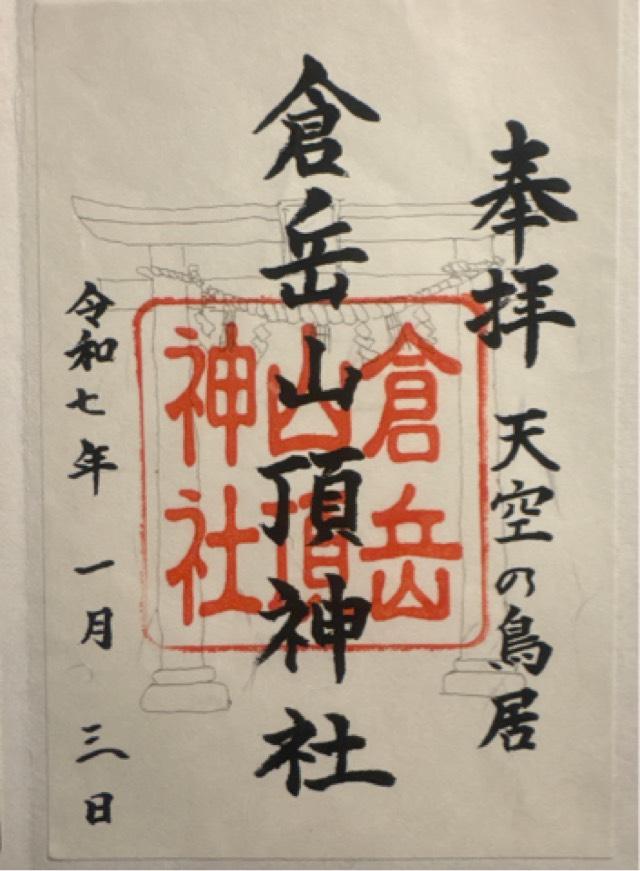 奉拝 天空の鳥居
倉岳山頂神社
倉岳
山頂
神社
令和七年 一月 三日